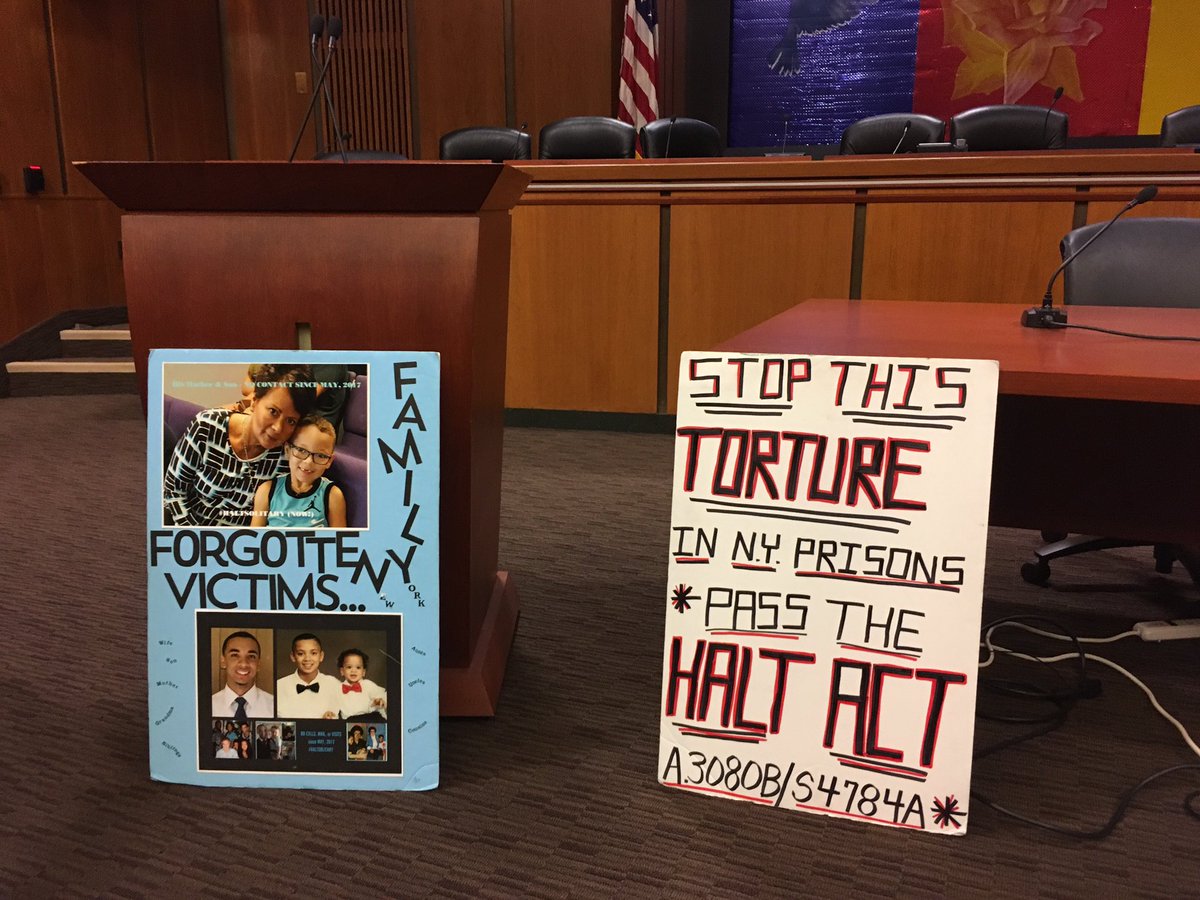 His Mother & Son - NO CONTACT SINCE MAY, 2017
#HALTSOLITARY (NOW!)
FAMILY
FORGOTTEN
VICTIMS...
NEW YORK
Wife
Son
Mother
Grandma
Siblings
Aunts
Uncles
Cousins
NO CALLS, MAIL, or VISITS
since MAY, 2017
STOP THIS
TORTURE
IN N.Y. PRISONS
* PASS THE
HALT ACT
A.3080B/S4784A *